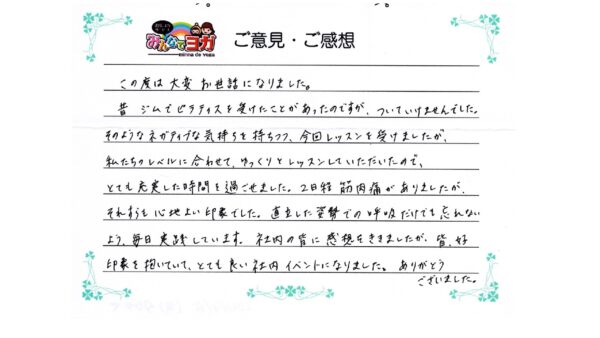 みんなでヨガ
minna de yoga
ご意見・ご感想
この度は大変お世話になりました。
昔ジムでピラティスを受けたことがあったのですが、ついていけませんでした。
そのようなネガティブな気持ちを持ちつつ、今回レッスンを受けましたが、
私たちのレベルに合わせて、ゆっくりとレッスンしていただいたので、
とても充実した時間を過ごせました。2日程筋肉痛がありましたが、
それすらも心地よい印象でした。直立した姿勢での呼吸だけでも忘れない
よう、毎日実践しています。社内の皆に感想をききましたが、皆、好
印象を抱いていて、とても良い社内イベントになりました。ありがとう
ございました。